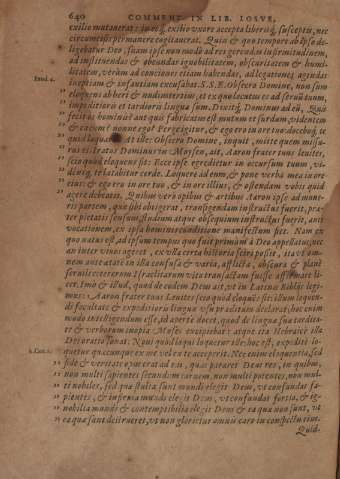 640 COMMENT. IN LIB. IOSVE,
exilio mutauerat: in eoq́; exilio vxore accepta liberosq́; susceptis, nec
circumcisos permanere cogitauerat. Quin & quo tempore ab ipso de-
ligebatur Deo, suam ipse non modò ad res gerendas infirmitudinem,
ad instituendas & obeundas ignobilitatem, obscuritatem & humi-
litatem, verùm ad conciones etiam habendas, allegationes agendas
Exod. 4. ineptiam & infantiam excusabat. S.S.E. Obsecro Domine, non sum
„ eloquens ab heri & nudiustertius, et ex quo locutus es ad seruū tuum,
„ impeditioris et tardioris lingua sum. Dixitq́; Dominus ad eū, Quis
„ fecit os hominis? aut quis fabricatus est mutum et surdum, videntem
„ & cæcum? nonne ego? Perge igitur, & ego ero in ore tuo: doceboq́; te
„ quid loquaris. At ille: Obsecro Domine, inquit, mitte quem missu-
„ rus es. Iratus Dominus in Moysen, ait, Aaron frater tuus leuites,
„ scio quod eloquens sit: Ecce ipse egredietur in occursum tuum, vi-
„ densq́; te lætabitur corde. Loquere ad eum, & pone verba mea in ore
„ eius: & ego ero in ore tuo, & in ore illius, & ostendam vobis quid
„ agere debeatis. Quibus verò opibus & artibus Aaron ipse ad mune-
ris partem, quæ sibi obtigerat, transigendam instructus fuerit, præ-
ter pietatis sensum studiúm atque obsequium instructus fuerit, ant
vocationem, ex ipsa hominis conditione manifestum fiet. Nam ex
quo natus est, ad ipsum tempus quo fuit primùm à Deo appellatus, nec
an inter viuos ageret, ex vlla certa historia sciri posset, ita vt om-
nem ante ætatem in illa confusa & varia, afflicta, obscura &
seruili ceterorum Israelitarum vita transactam fuisse affirmare li-
cet. Imò & illud, quod de eodem Deus ait, vt in Latinis Biblijs legi-
mus: Aaron frater tuus Leuites scio quod eloquēs sit: illum loquen-
di facultate & expeditioris linguæ vsu præditum declarat: hoc enim
modo intelligendum est, id aperiè docet, quod de linguæ suæ tardita-
te & verborum inopia Moses excipiebat: atque ita Hebraicè illa
Dei oratio sonat: Noui quod loqui loquetur ille: hoc est, expeditè lo-
1. Cor. 1. quetur quæcunque ex me vel ex te acceperit. Nec enim eloquentia, sed
„ fide & veritate opus erat ad ea, quæ pararet Deus res, in quibus,
„ non multi sapientes secundum carnem, non multi potentes, non mul-
„ ti nobiles, sed quæ stulta sunt mundi elegit Deus, vt confundat sa-
„ pientes, & infirma mundi elegit Deus, vt confundat fortia, & ig-
„ nobilia mundi & contemptibilia elegit Deus & ea quæ non sunt, vt
„ ea quæ sunt destrueret, vt non glorietur omnis caro in conspectu eius.
Quid-